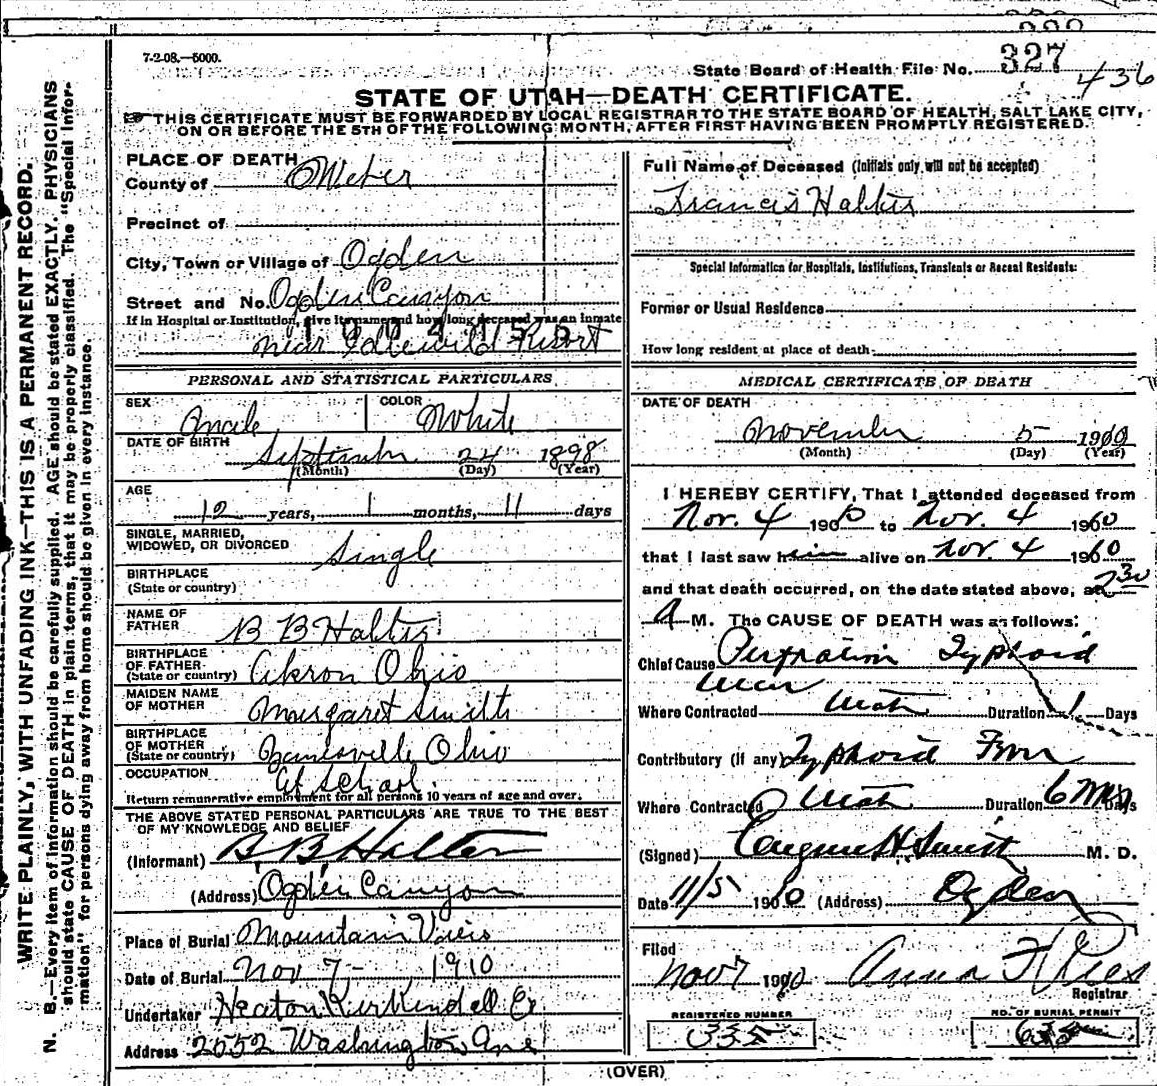 7-2-08.—5000.
State Board of Health File No. 327
436
STATE OF UTAH—DEATH CERTIFICATE.
THIS CERTIFICATE MUST BE FORWARDED BY LOCAL REGISTRAR TO THE STATE BOARD OF HEALTH, SALT LAKE CITY,
ON OR BEFORE THE 5TH OF THE FOLLOWING MONTH, AFTER FIRST HAVING BEEN PROMPTLY REGISTERED.
WRITE PLAINLY, WITH UNFADING INK—THIS IS A PERMANENT RECORD.
N. B.—Every item of information should be carefully supplied. AGE should be stated EXACTLY. PHYSICIANS
should state CAUSE OF DEATH in plain terms, that it may be properly classified. The "Special Infor-
mation" for persons dying away from home should be given in every instance.
PLACE OF DEATH
County of Weber
Precinct of
City, Town or Village of Ogden
Street and No. Ogden Canyon
If in Hospital or Institution, give its name and how long deceased was an inmate
near Idlewild Resort
PERSONAL AND STATISTICAL PARTICULARS
SEX Male COLOR White
DATE OF BIRTH September 24 1898
(Month) (Day) (Year)
AGE
12 years, 1 months, 11 days
SINGLE, MARRIED,
WIDOWED, OR DIVORCED Single
BIRTHPLACE
(State or country)
NAME OF
FATHER B B Halter
BIRTHPLACE
OF FATHER
(State or country) Akron Ohio
MAIDEN NAME
OF MOTHER Margaret Smith
BIRTHPLACE
OF MOTHER
(State or country) Zanesville Ohio
OCCUPATION At School
Return remunerative employment for all persons 10 years of age and over.
THE ABOVE STATED PERSONAL PARTICULARS ARE TRUE TO THE BEST
OF MY KNOWLEDGE AND BELIEF
(Informant) B. B Halter
(Address) Ogden Canyon
Place of Burial Mountain View
Date of Burial Nov 7 - 1910
Undertaker Kirkendall Co
Address 2552 Washington Ave
Full Name of Deceased (Initials only will not be accepted)
Francis Halter
Special Information for Hospitals, Institutions, Transients or Recent Residents:
Former or Usual Residence
How long resident at place of death:
MEDICAL CERTIFICATE OF DEATH
DATE OF DEATH
November 5 1910
(Month) (Day) (Year)
I HEREBY CERTIFY, That I attended deceased from
Nov. 4 1910 to Nov. 4 1910
that I last saw him alive on Nov. 4 1910
and that death occurred, on the date stated above, at 2 30
A M. The CAUSE OF DEATH was as follows:
Chief Cause Perforation Typhoid
Ulcer
Where Contracted Utah Duration 1 Days
Contributory (if any) Typhoid Fever
Where Contracted Utah Duration 6 Days
(Signed) Eugene H. Smith M. D.
Date 11/5 1910 (Address) Ogden
Filed
Nov 7 1910 Anna F Rees
Registrar
REGISTERED NUMBER
335
NO. OF BURIAL PERMIT
(OVER)